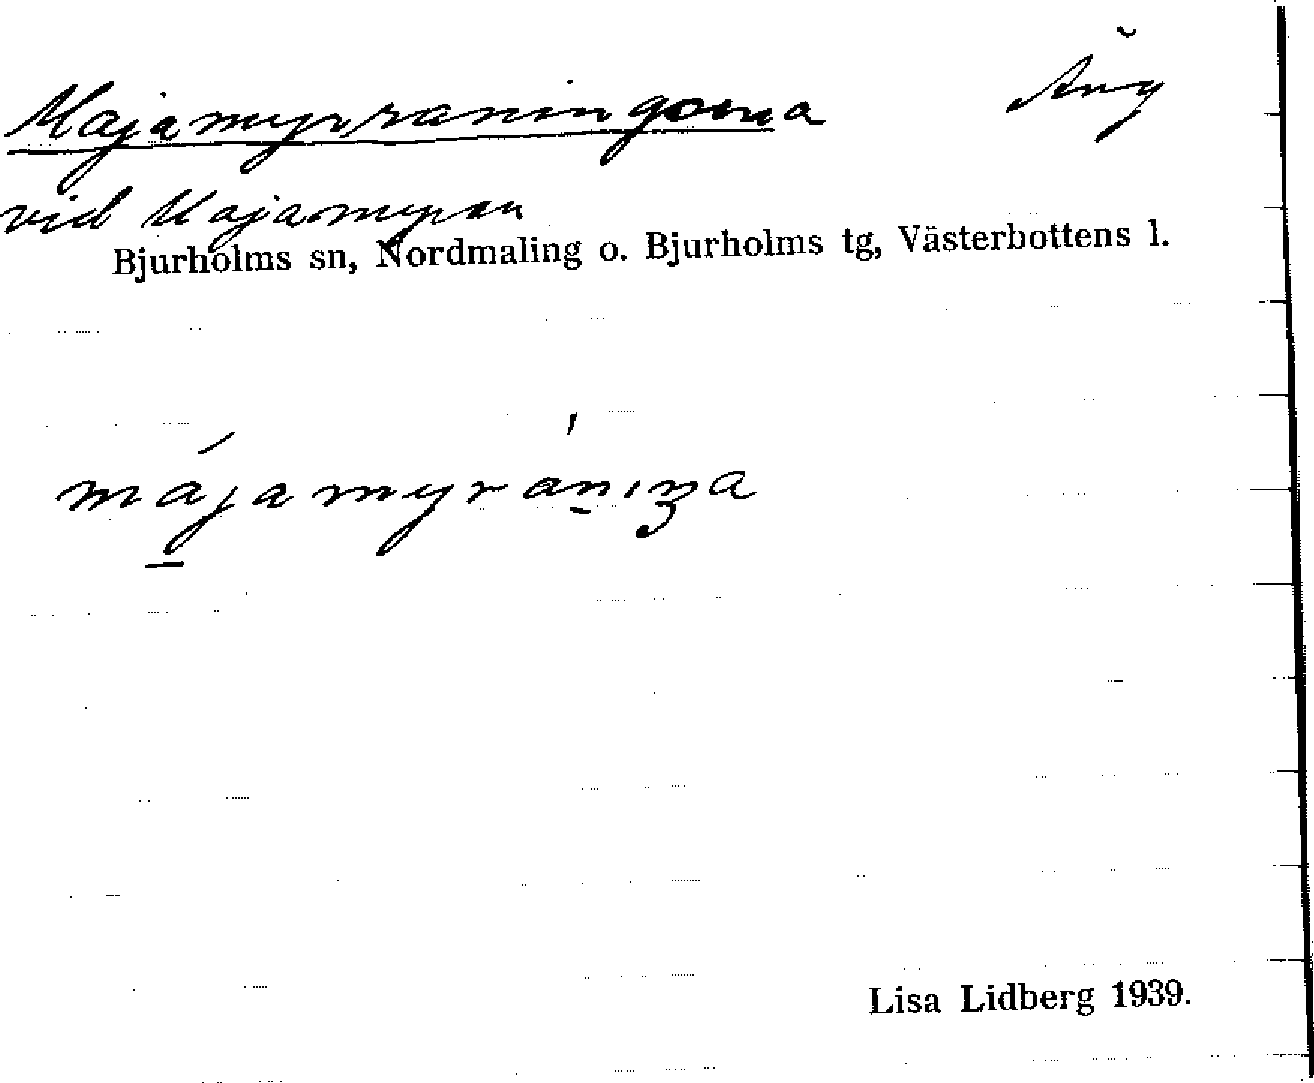 Majamyrraningorna Ång
vid Majamyran
Bjurholms sn, Nordmaling o. Bjurholms tg, Västerbottens l.
májamyránıŋa
Lisa Lidberg 1939.